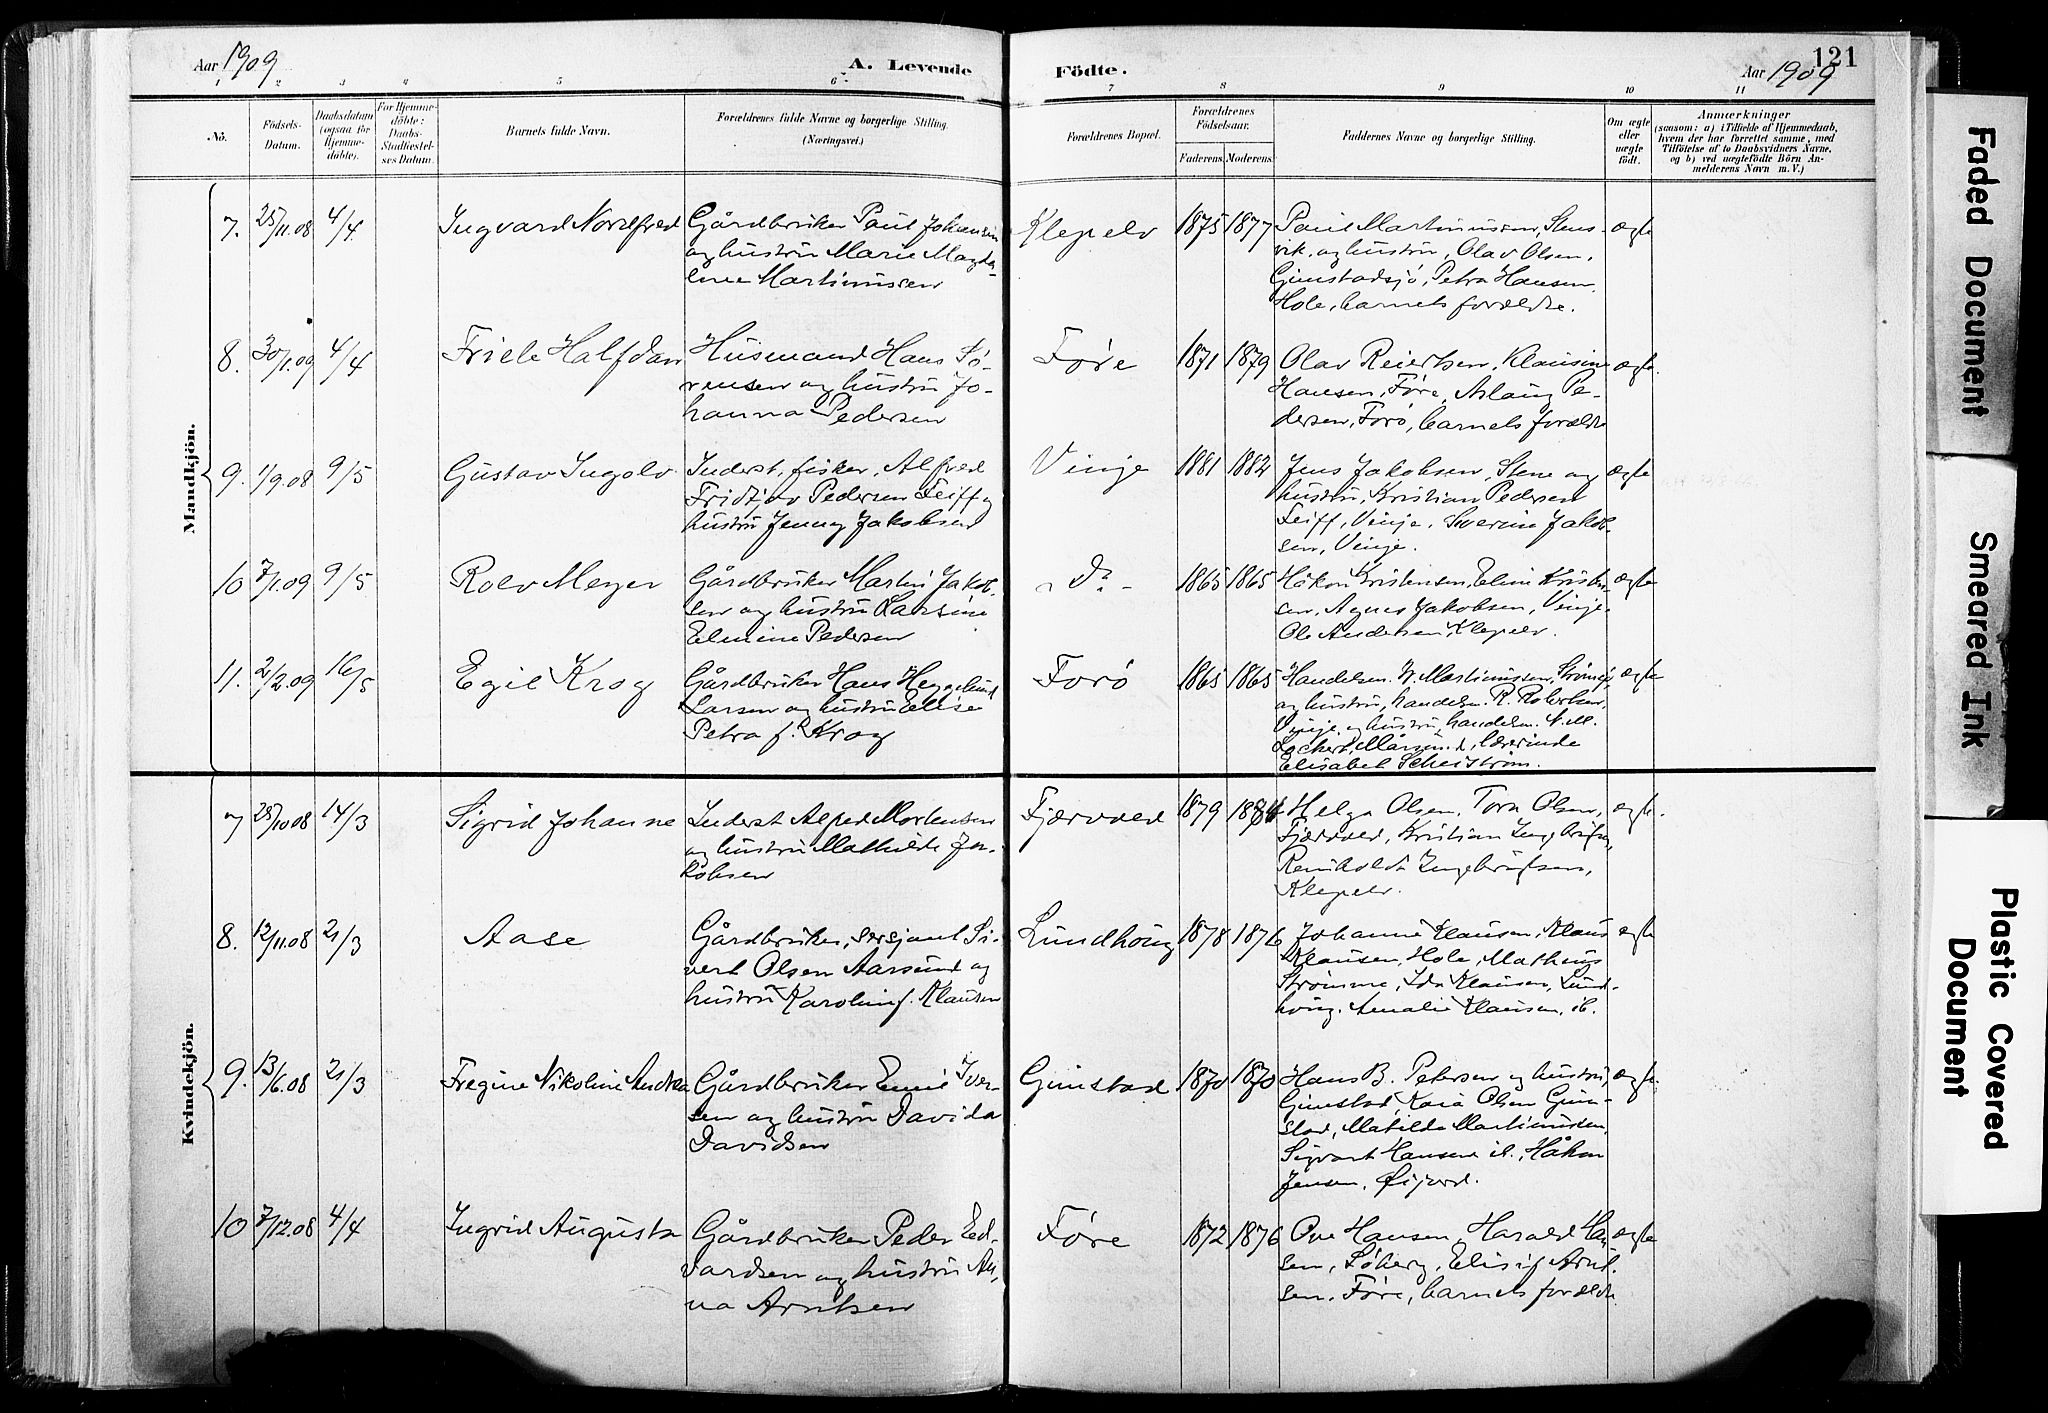 121
Aar 1909
A. Levende Födte.
Aar 1909
1 2 3 4 5 6 7 8 9 10 11
Nö.
Födsels-Datum.
Daabsdatum (ogsaa for Hjemmedöbte).
For Hjemmedöbte: Daabs-Stadfæstelses Datum.
Barnets fulde Navn.
Forældrenes fulde Navne og borgerlige Stilling. (Næringsvei.)
Forældrenes Bopæl.
Forældrenes Födselsaar.
Faderens. Moderens.
Faddernes Navne og borgerlige Stilling.
Om ægte eller uægte födt.
Anmærkninger
(saasom: a) i Tilfælde af Hjemmedaab, hvem der har forrettet samme, med Tilföielse af to Daabsvidners Navne, og b) ved uægtefödte Börn Anmelderens Navn m. V.)
Mandkjön.
7. 25/11.08 4/4 Ingvard Nordfred
Gårdbruker Paul Johansen
og hustru Marie Magda-
lene Martinussen
Klepelv 1875 1877
Paul Martinussen, Stens-
vik, og hustru, Olav Olsen,
Gimstadsjø, Petra Hansen
Hole, barnets forældre.
ægte
8. 30/1.09 4/4 Friele Halfdan
Husmand Hans Sø-
rensen og hustru Jo-
hanna Pedersen
Føre 1871 1879
Olav Reiertsen, Klausine
Hansen, Føre, Aslaug Pe-
dersen, Forø, barnets forældre
ægte.
9. 1/9.08 9/5 Gustav Ingolv
Inderst, fisker, Alfred
Fridtjov Pedersen Leiff og
hustru Jenny Jakobsen
Vinje 1881 1882
Jens Jakobsen, Stene og
hustru, Kristian Pedersen
Leiff, Vinje, Severine Jakob-
sen, Vinje.
ægte
10 7/1.09 9/5 Rolv Meyer
Gårdbruker Martin Jakob-
sen og hustru Larsine
Elmine Pedersen
- Do - 1865 1865
Håkon Kristensen, Eline Kristen-
sen, Agnes Jakobsen, Vinje.
Ole Andersen, Klepelv.
ægte
11. 2/2.09 16/5 Egil Krog
Gårdbruker Hans Heggelund
Larsen og hustru Elise
Petra f. Krog
Forø 1865 1865
Handelsm. W. Martinussen, Strømø,
og hustru, handelsm. R. Robertsen,
Vinje, og hustru, handelsm. N. M.
Lockert, Mårsund, lærerinde
Elisabet
ægte
Kvindekjön.
7 25/10.08 14/3 Sigrid Johanne
Inderst Alfred Mortensen
og hustru Mathilde Ja-
kobsen
Fjærvoll 1879
Helga Olsen, Tora Olsen,
Fjærvoll, Kristian Ingebrigtsen,
Reinholdt Ingebrigtsen,
Klepelv.
ægte.
8. 12/11.08 21/3 Aase
Gårdbruker, sersjant Si-
vert Olsen Aarsund og
hustru Karolin f. Klausen
Lundhøug 1878 1876
Johanne Klausen, Klaus
Klausen, Hole, Matheus
Strømme, Ida Klausen, Lund-
høug. Amalie Klausen, ib.
ægte
9. 13/6.08 21/3 Fregine Nikoline Andrea
Gårdbruker Emil Iver-
sen og hustru Davida
Davidsen
Gimstad 1870 1870
Hans B. Petersen og hustru,
Gimstad, Kaia Olsen Gim-
stad, Matilde Martinussen,
Sigvart Hansen ib., Håkon
Jensen, Øijord.
ægte.
10 7/12.08 4/4 Ingrid Augusta
Gårdbruker Peder Ed-
vardsen og hustru An-
na Arntsen
Føre 1872 1876
Ove Hansen, Harald Han
sen, Søberg, Elisif Arnt-
sen, Føre, barnets forældre
ægte
Faded Document
Smeared Ink
Plastic Covered Document